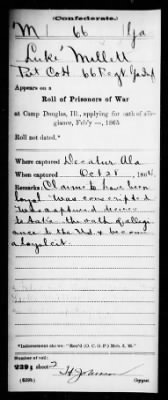 (Confederate.)
M 66 Ga
Luke Millett
Pvt Co H 66 Regt Ga Inf
Appears on a
Roll of Prisoners of War
at Camp Douglas, Ill., applying for oath of alle-
giance, Feb'y —, 1865
Roll not dated.*
Where captured Decatur Ala
When captured Oct 28, 1864
Remarks: Claims to have been
loyal. Was conscripted
Was captured desires
to take the oath of allegi
ance to the U.S. & become
a loyal cit.
*Indorsement shows: "Rec'd (O. C. G. P.) Mch. 2,
Number of roll:
239; sheet 2
H Johnson
(639b) Copyist.